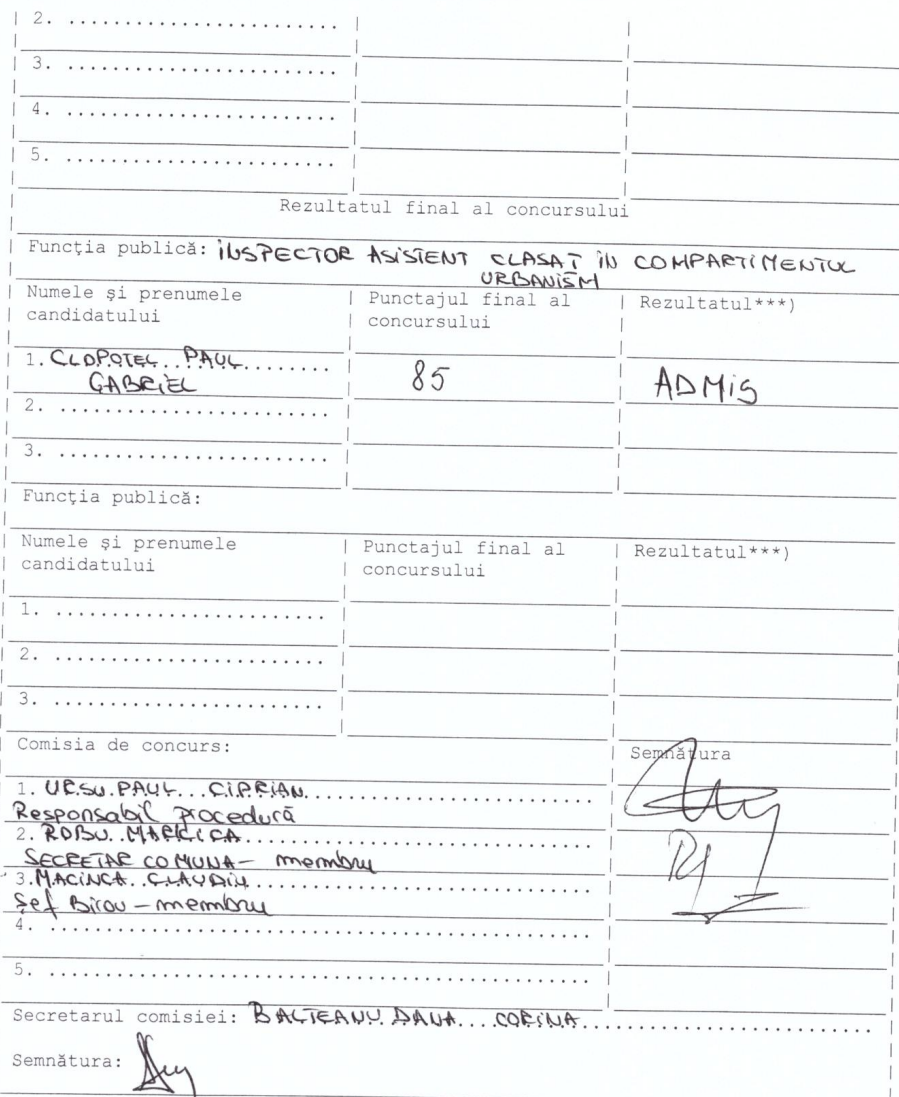 2. ........................
3. ........................
4. ........................
5. ........................
Rezultatul final al concursului
Funcția publică: INSPECTOR ASISTENT CLASAT IN COMPARTIMENTUL
URBANISM
Numele și prenumele candidatului Punctajul final al concursului Rezultatul***)
1. CLOPOTEL PAUL GABRIEL 85 ADMIS
2. ........................
3. ........................
Funcția publică:
Numele și prenumele candidatului Punctajul final al concursului Rezultatul***)
1. ........................
2. ........................
3. ........................
Comisia de concurs: Semnătura
1. URSU PAUL CIPRIAN
Responsabil procedură
2. ROBU MARICICA
SECRETAR COMUNA - membru
3. MACINCA CLAUDIU
Șef Birou - membru
4. ........................
5. ........................
Secretarul comisiei: BALTEANU DANA CORINA
Semnătura: